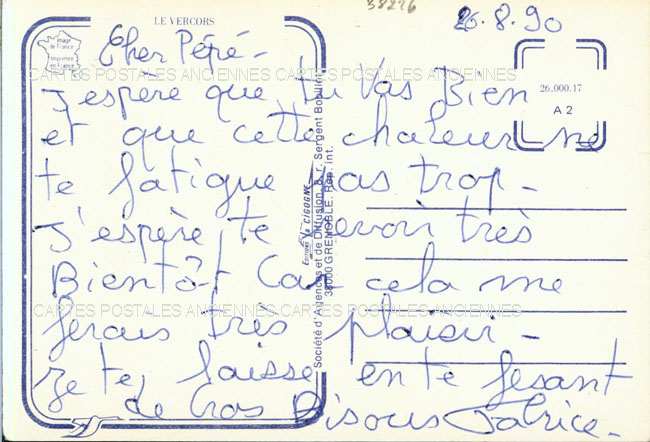 LE VERCORS
38226
26.8.90
Image de France
Imprimée en France
26.000.17
A 2
Cher Pépé -
J'espère que tu vas Bien
et que cette chaleur ne
te fatigue pas trop -
J'espère te revoir très
Bientôt Car cela me
ferais très plaisir -
Je te laisse en te fesant
de Gros Bisous Fabrice -
Editions La CIGOGNE
Société d'Agences et de Diffusion, 8, r. Sergent Bobillot
38000 GRENOBLE. Rep. int.
CARTES POSTALES ANCIENNES CARTES POSTALES ANCIENNES
CARTES POSTALES ANCIENNES CARTES POSTALES ANCIENNES